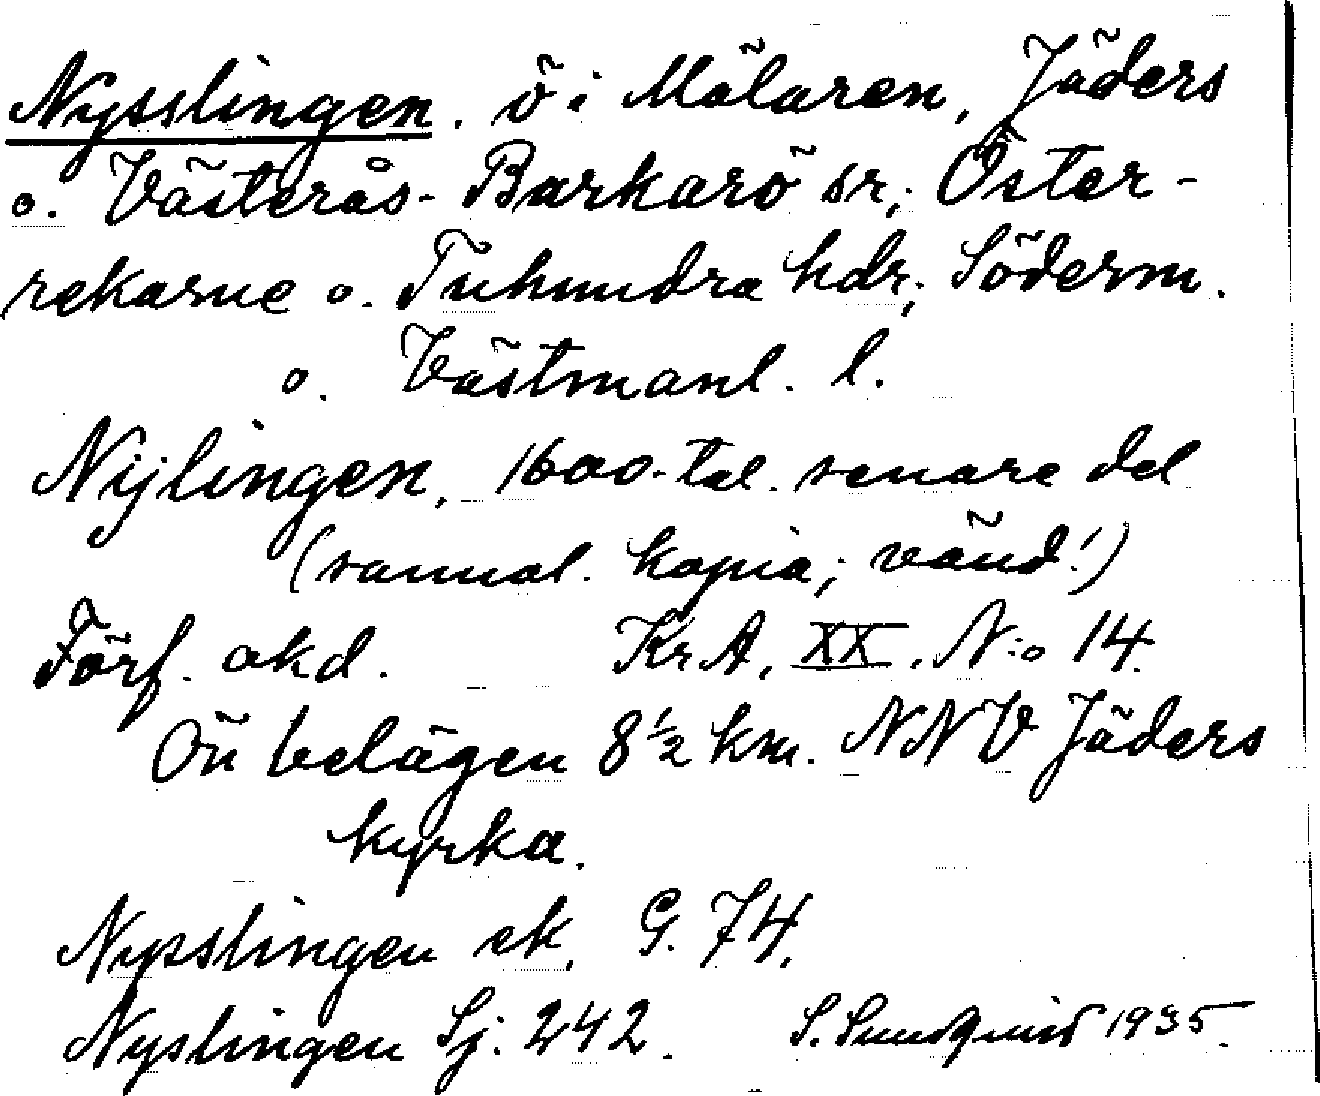 Nysslingen. ö i Mälaren, Jäders
o. Västerås-Barkarö sr; Öster-
rekarne o. Tuhundra hdr; Söderm.
o. Västmanl. l.
Nijlingen, 1600-tal. senare del
(samal. kopia; vänd!)
Förf. akd. Kr A, XX. N:o 14.
Ön belägen 8 1/2 km. NNV Jäders
kyrka.
Nysslingen ek. G. 74.
Nyslingen Sj. 242. S. Sundquist 1935.